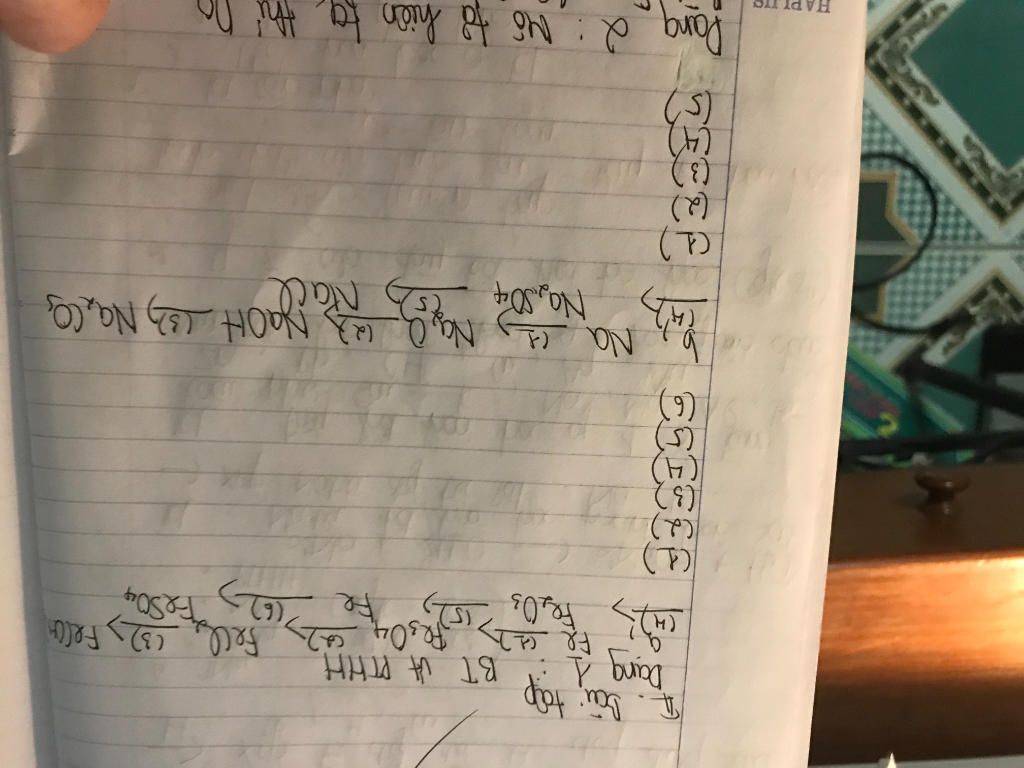 II. Bài tập
Dạng 1: BT về PTHH
a, Fe (1)→ Fe3O4 (2)→ FeCl2 (3)→ Fe(OH
(4)→ Fe2O3 (5)→ Fe (6)→ FeSO4
(1)
(2)
(3)
(4)
(5)
(6)
b, Na (1)→ Na2O (2)→ NaOH (3)→ Na2CO3
(4)→ Na2SO4 (5)→ NaCl
(1)
(2)
(3)
(4)
(5)
Dạng 2: Mô tả hiện tg, thí
HAPLUS